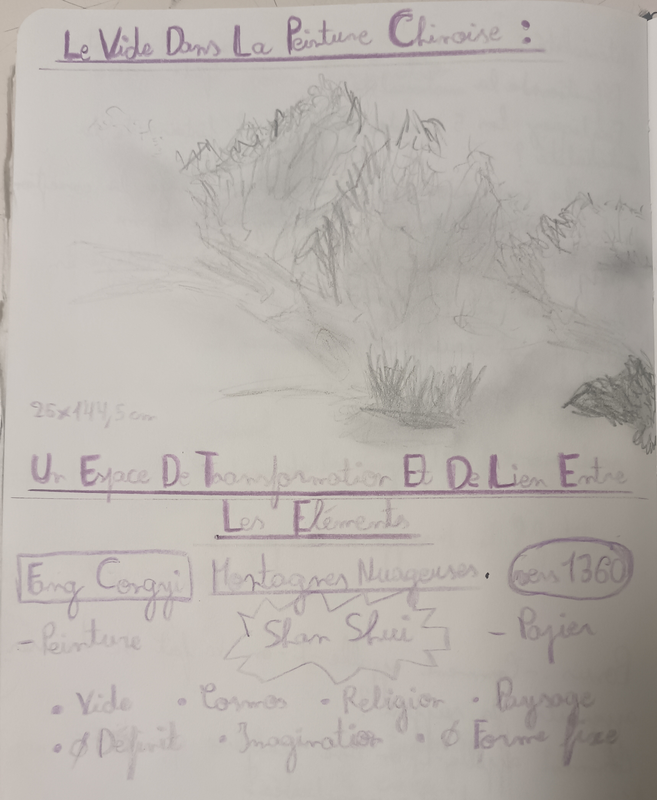 Le Vide Dans La Peinture Chinoise :
25x144,5 cm
Un Espace De Transformation Et De Lien Entre
Les Eléments
Fang Congyi Montagnes Nuageuses. vers 1360
- Peinture Shan Shui - Papier
• Vide • Cosmos • Religion • Paysage
• Ø Définit • Imagination • Ø Forme fixe